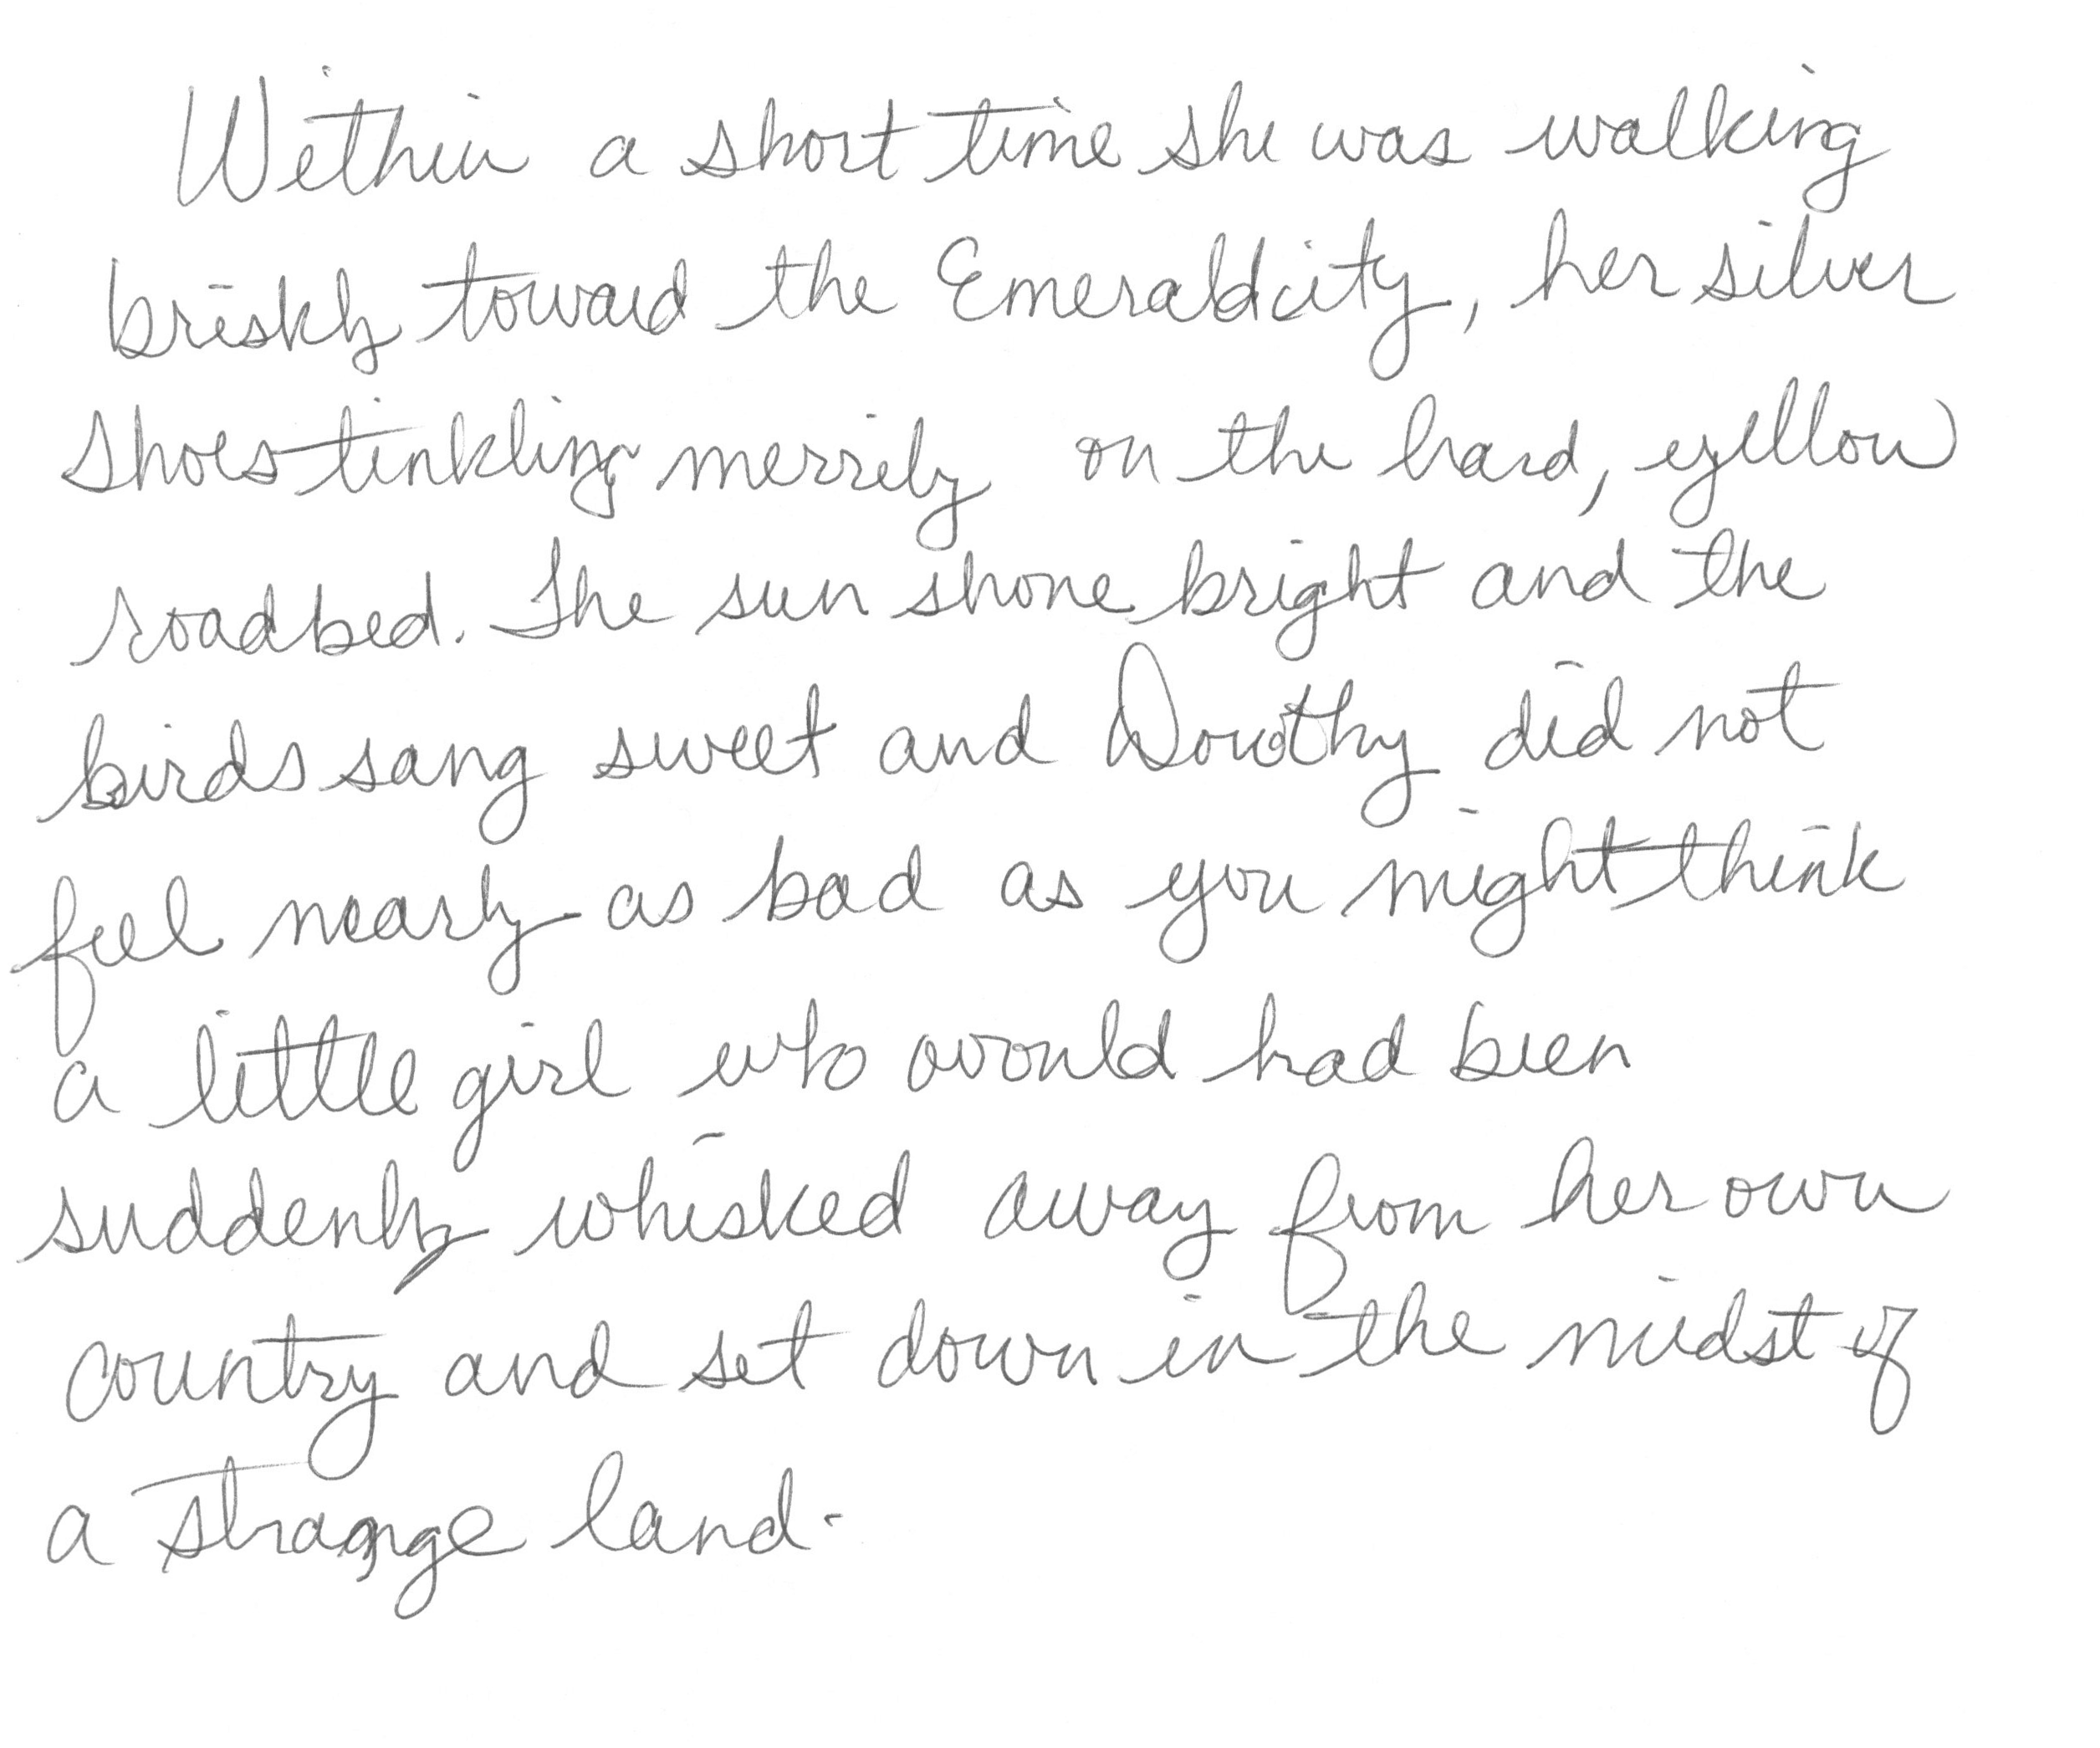 Within a short time she was walking
briskly toward the Emerald city, her silver
shoes tinkling merrily on the hard, yellow
roadbed. The sun shone bright and the
birds sang sweet and Dorothy did not
feel nearly as bad as you might think
a little girl who would had been
suddenly whisked away from her own
country and set down in the midst of
a strange land.